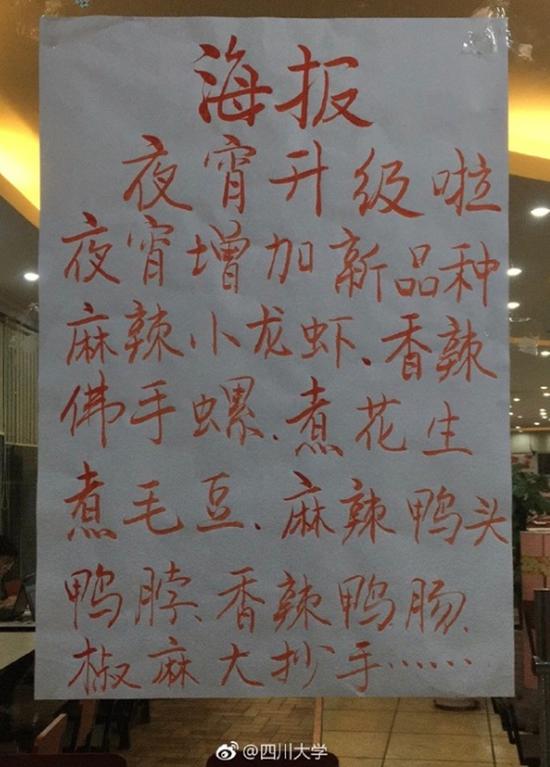 海报
夜宵升级啦
夜宵增加新品种
麻辣小龙虾、香辣
佛手螺、煮花生
煮毛豆、麻辣鸭头
鸭脖、香辣鸭肠、
椒麻大抄手……
@四川大学